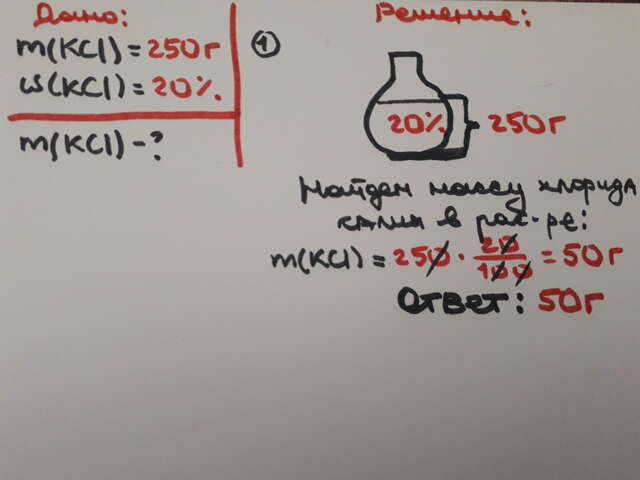 Дано:
m(KCl) = 250г
ω(KCl) = 20%
m(KCl) - ?
Решение:
①
20%
250г
Найдем массу хлорида
калия в рас-ре:
m(KCl) = 250 · 20/100 = 50г
Ответ: 50г